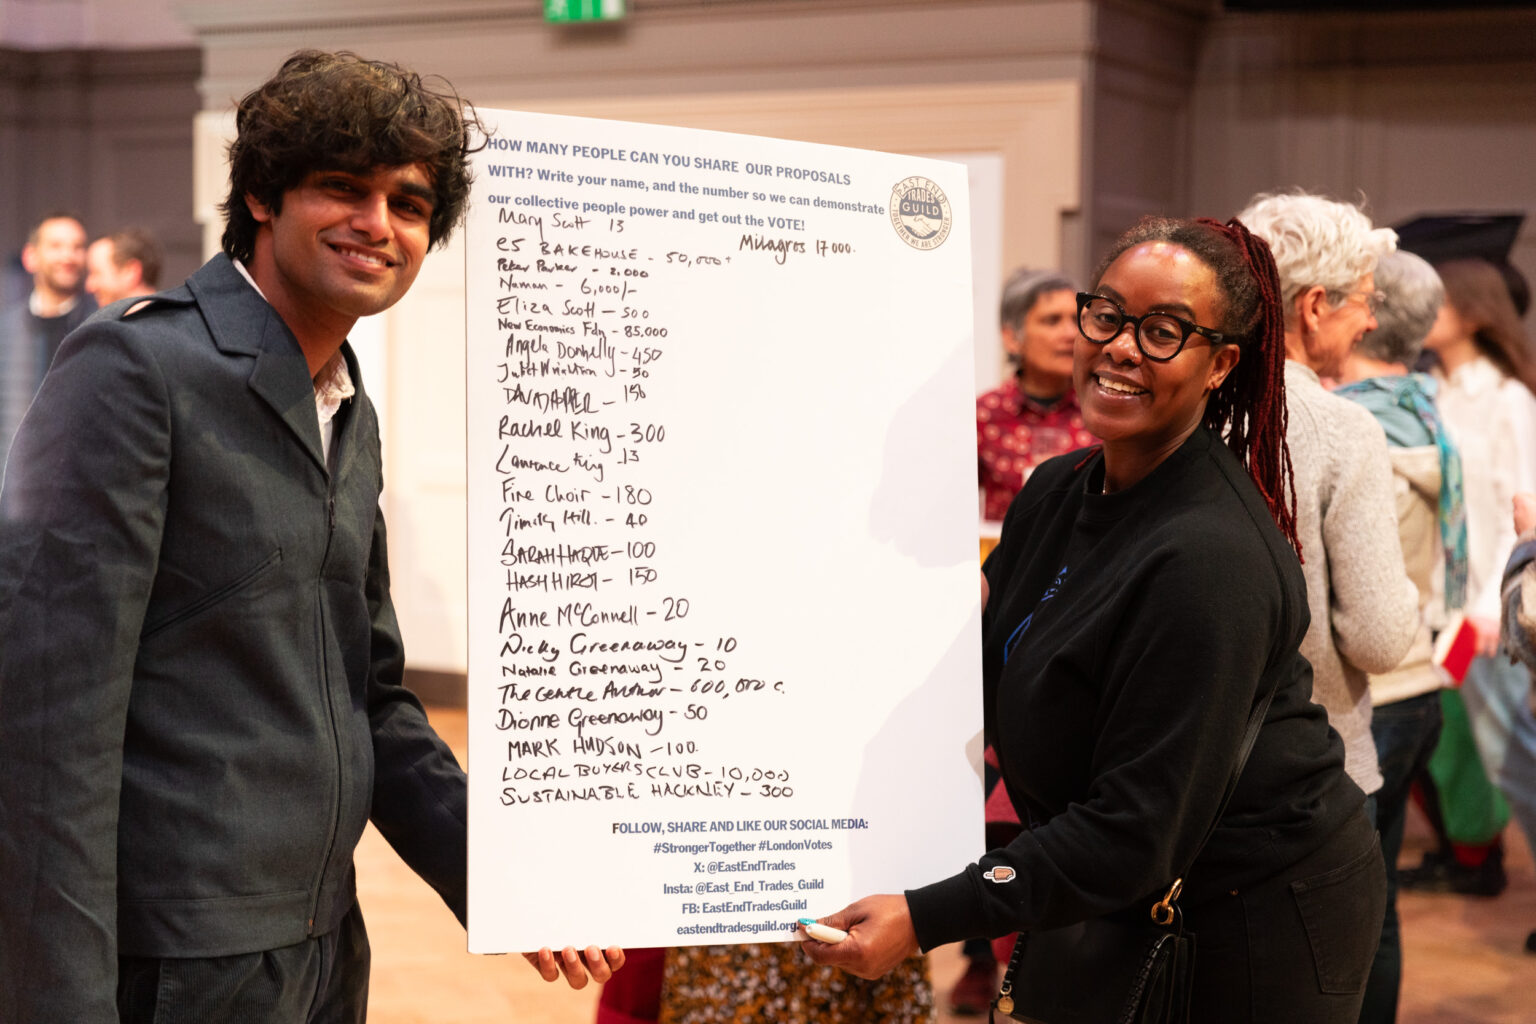 HOW MANY PEOPLE CAN YOU SHARE OUR PROPOSALS
WITH? Write your name, and the number so we can demonstrate
our collective people power and get out the VOTE!
EAST END
TRADES
GUILD
TOGETHER WE ARE STRONGER
Mary Scott 13
Milagros 17000.
e5 BAKEHOUSE - 50,000+
Peter Parker - 2,000
Numan - 6,000/-
Eliza Scott - 500
New Economics Fdn - 85,000
Angela Donnelly - 450
Juliet - 50
- 150
Rachel King - 300
Laurence King - 13
Fire Choir - 180
Timothy Hill. - 40
SARAH HAQUE - 100
HASH HIROJI - 150
Anne McConnell - 20
Nicky Greenaway - 10
Natalie Greenaway - 20
The Gentle Author - 600,000 c.
Dionne Greenaway - 50
MARK HUDSON - 100.
LOCAL BUYERS CLUB - 10,000
SUSTAINABLE HACKNEY - 300
FOLLOW, SHARE AND LIKE OUR SOCIAL MEDIA:
#StrongerTogether #LondonVotes
X: @EastEndTrades
Insta: @East_End_Trades_Guild
FB: EastEndTradesGuild
eastendtradesguild.org.